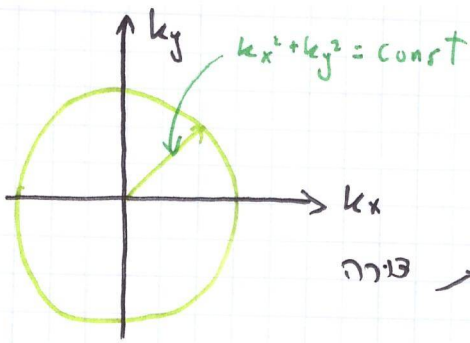 ky
kx²+ky² = const
kx
צורה